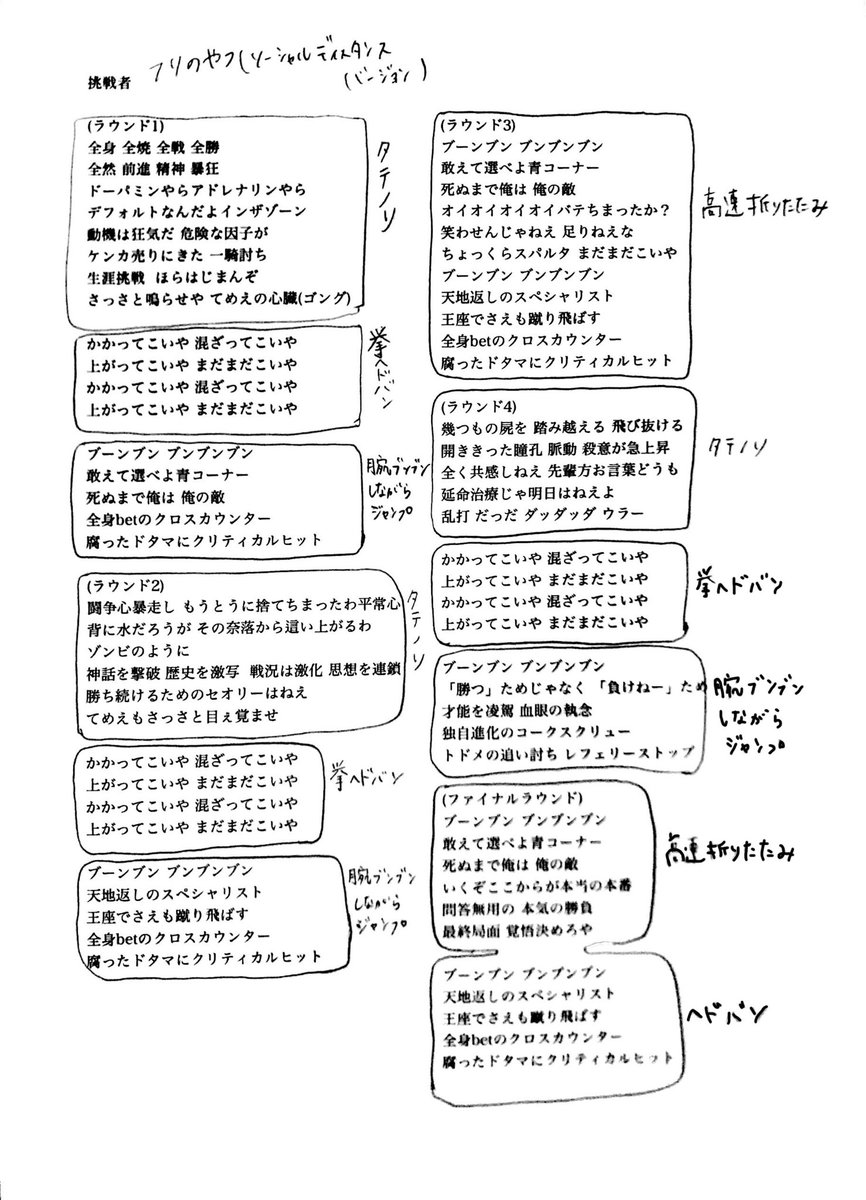 挑戦者 フリのやつ(ソーシャルディスタンス
(バージョン)
(ラウンド1)
全身 全焼 全戦 全勝
全然 前進 精神 暴狂
ドーパミンやらアドレナリンやら
デフォルトなんだよインザゾーン
動機は狂気だ 危険な因子が
ケンカ売りにきた 一騎討ち
生涯挑戦 ほらはじまんぞ
さっさと鳴らせや てめえの心臓(ゴング)
タテノリ
かかってこいや 混ざってこいや
上がってこいや まだまだこいや
かかってこいや 混ざってこいや
上がってこいや まだまだこいや
拳ヘドバン
ブーンブン ブンブンブン
敢えて選べよ青コーナー
死ぬまで俺は 俺の敵
全身betのクロスカウンター
腐ったドタマにクリティカルヒット
腕ブンブン
しながら
ジャンプ
(ラウンド2)
闘争心暴走し もうとうに捨てちまったわ平常心
背に水だろうが その奈落から這い上がるわ
ゾンビのように
神話を撃破 歴史を激写 戦況は激化 思想を連鎖
勝ち続けるためのセオリーはねえ
てめえもさっさと目ぇ覚ませ
タテノリ
かかってこいや 混ざってこいや
上がってこいや まだまだこいや
かかってこいや 混ざってこいや
上がってこいや まだまだこいや
拳ヘドバン
ブーンブン ブンブンブン
天地返しのスペシャリスト
王座でさえも蹴り飛ばす
全身betのクロスカウンター
腐ったドタマにクリティカルヒット
腕ブンブン
しながら
ジャンプ
(ラウンド3)
ブーンブン ブンブンブン
敢えて選べよ青コーナー
死ぬまで俺は 俺の敵
オイオイオイオイバテちまったか？
笑わせんじゃねえ 足りねえな
ちょっくらスパルタ まだまだこいや
ブーンブン ブンブンブン
天地返しのスペシャリスト
王座でさえも蹴り飛ばす
全身betのクロスカウンター
腐ったドタマにクリティカルヒット
高速折りたたみ
(ラウンド4)
幾つもの屍を 踏み越える 飛び抜ける
開ききった瞳孔 脈動 殺意が急上昇
全く共感しねえ 先輩方お言葉どうも
延命治療じゃ明日はねえよ
乱打 だっだ ダッダッダ ウラー
タテノリ
かかってこいや 混ざってこいや
上がってこいや まだまだこいや
かかってこいや 混ざってこいや
上がってこいや まだまだこいや
拳ヘドバン
ブーンブン ブンブンブン
「勝つ」ためじゃなく 「負けねー」ため
才能を凌駕 血眼の執念
独自進化のコークスクリュー
トドメの追い討ち レフェリーストップ
腕ブンブン
しながら
ジャンプ
(ファイナルラウンド)
ブーンブン ブンブンブン
敢えて選べよ青コーナー
死ぬまで俺は 俺の敵
いくぞここからが本当の本番
問答無用の 本気の勝負
最終局面 覚悟決めろや
高速折りたたみ
ブーンブン ブンブンブン
天地返しのスペシャリスト
王座でさえも蹴り飛ばす
全身betのクロスカウンター
腐ったドタマにクリティカルヒット
ヘドバン